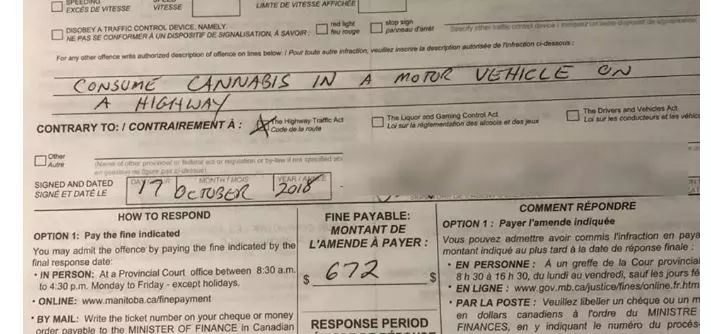 SPEEDING
EXCÈS DE VITESSE
SPEED
VITESSE
LIMITE DE VITESSE AFFICHÉE
DISOBEY A TRAFFIC CONTROL DEVICE, NAMELY:
NE PAS SE CONFORMER À UN DISPOSITIF DE SIGNALISATION, À SAVOIR :
red light
feu rouge
stop sign
panneau d'arrêt
Specify other traffic control device /
For any other offence write authorized description of offence on lines below: / Pour toute autre infraction, veuillez inscrire la description autorisée de l'infraction ci-dessous :
CONSUME CANNABIS IN A MOTOR VEHICLE ON
A HIGHWAY
CONTRARY TO: / CONTRAIREMENT À :
The Highway Traffic Act
Code de la route
The Liquor and Gaming Control Act
Loi sur la réglementation des alcools et des jeux
The Drivers and Vehicles Act
Loi sur les conducteurs et les véhic
Other
Autre
(Name of other provincial or federal act or regulation or by-law if not specified
SIGNED AND DATED
SIGNÉ ET DATÉ LE
MONTH/MOIS
YEAR/ANNÉE
17 OCTOBER 2018
HOW TO RESPOND
OPTION 1: Pay the fine indicated
You may admit the offence by paying the fine indicated by the
final response date:
• IN PERSON: At a Provincial Court office between 8:30 a.m.
to 4:30 p.m. Monday to Friday - except holidays.
• ONLINE: www.manitoba.ca/finepayment
• BY MAIL: Write the ticket number on your cheque or money
order payable to the MINISTER OF FINANCE in Canadian
FINE PAYABLE:
MONTANT DE
L'AMENDE À PAYER :
$ 672 $
RESPONSE PERIOD
COMMENT RÉPONDRE
OPTION 1 : Payer l'amende indiquée
Vous pouvez admettre avoir commis l'infraction en paya
montant indiqué au plus tard à la date de réponse finale :
• EN PERSONNE : À un greffe de la Cour provincial
8 h 30 à 16 h 30, du lundi au vendredi, sauf les jours fé
• EN LIGNE : www.gov.mb.ca/justice/fines/online.fr.htm
• PAR LA POSTE : Veuillez libeller un chèque ou un m
en dollars canadiens à l'ordre du MINISTRE
FINANCES, en y indiquant le numéro du procès-